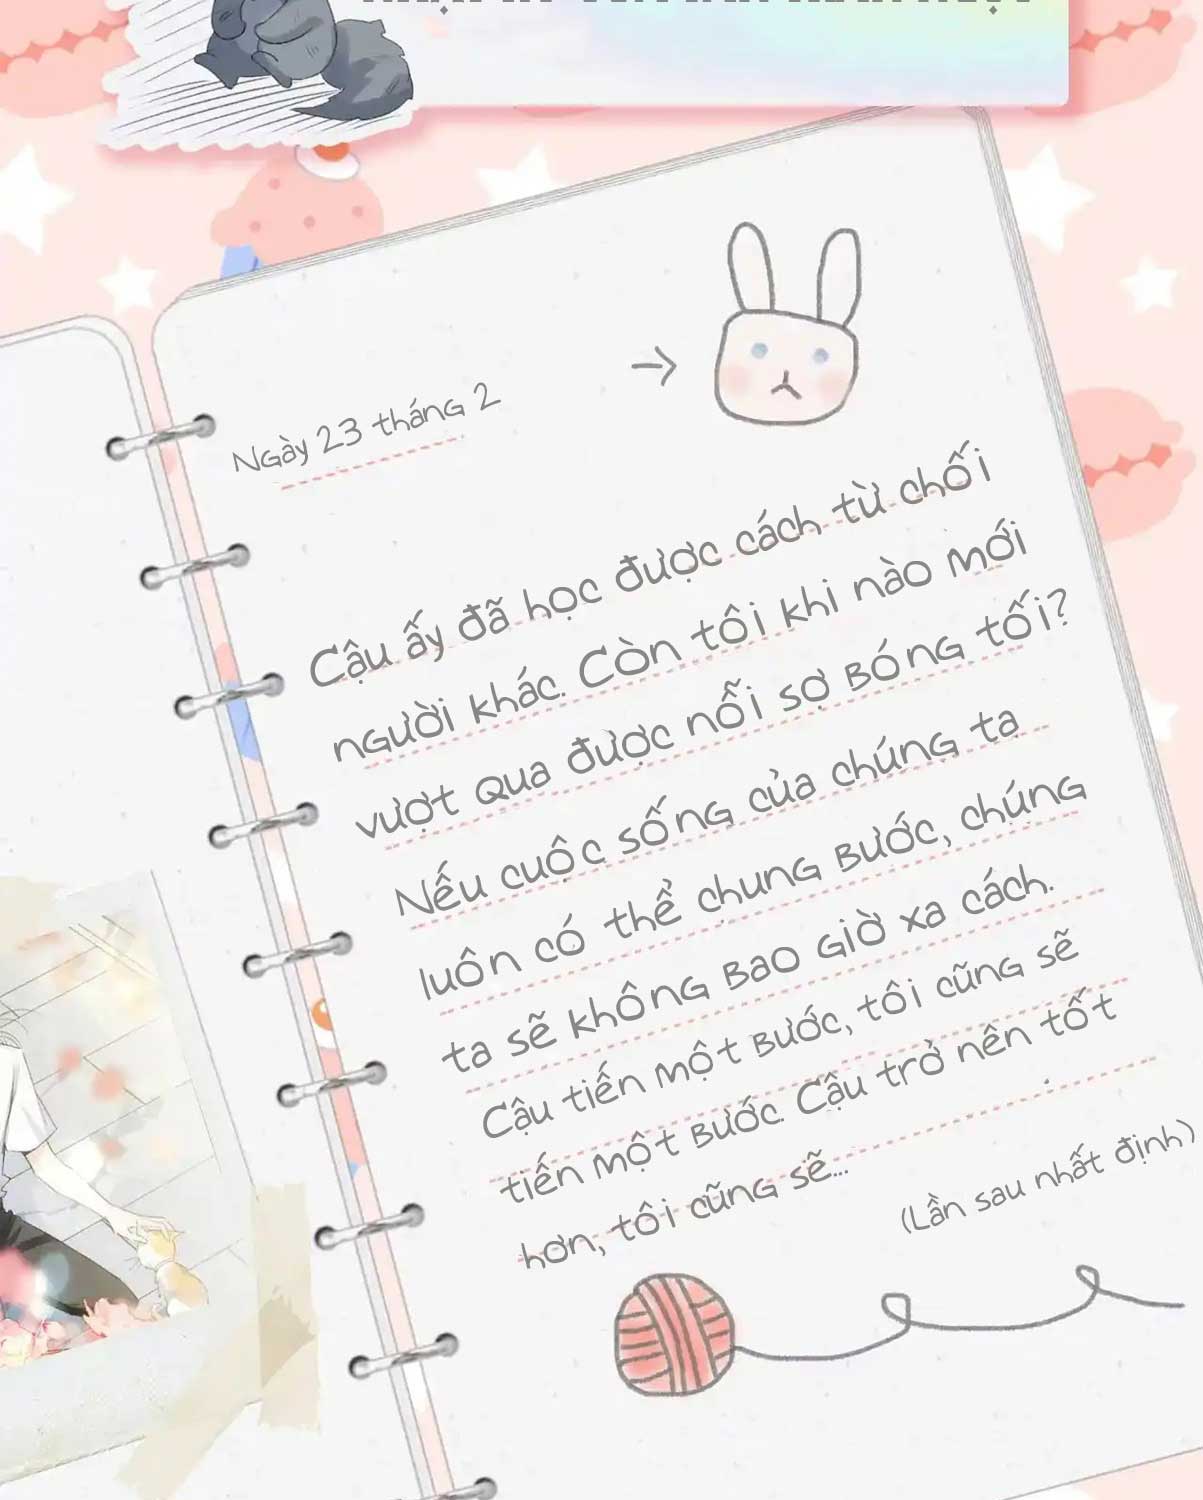 Ngày 23 tháng 2
Cậu ấy đã học được cách từ chối
người khác. Còn tôi khi nào mới
vượt qua được nỗi sợ bóng tối?
Nếu cuộc sống của chúng ta
luôn có thể chung bước, chúng
ta sẽ không bao giờ xa cách.
Cậu tiến một bước, tôi cũng sẽ
tiến một bước. Cậu trở nên tốt
hơn, tôi cũng sẽ...
(Lần sau nhất định)